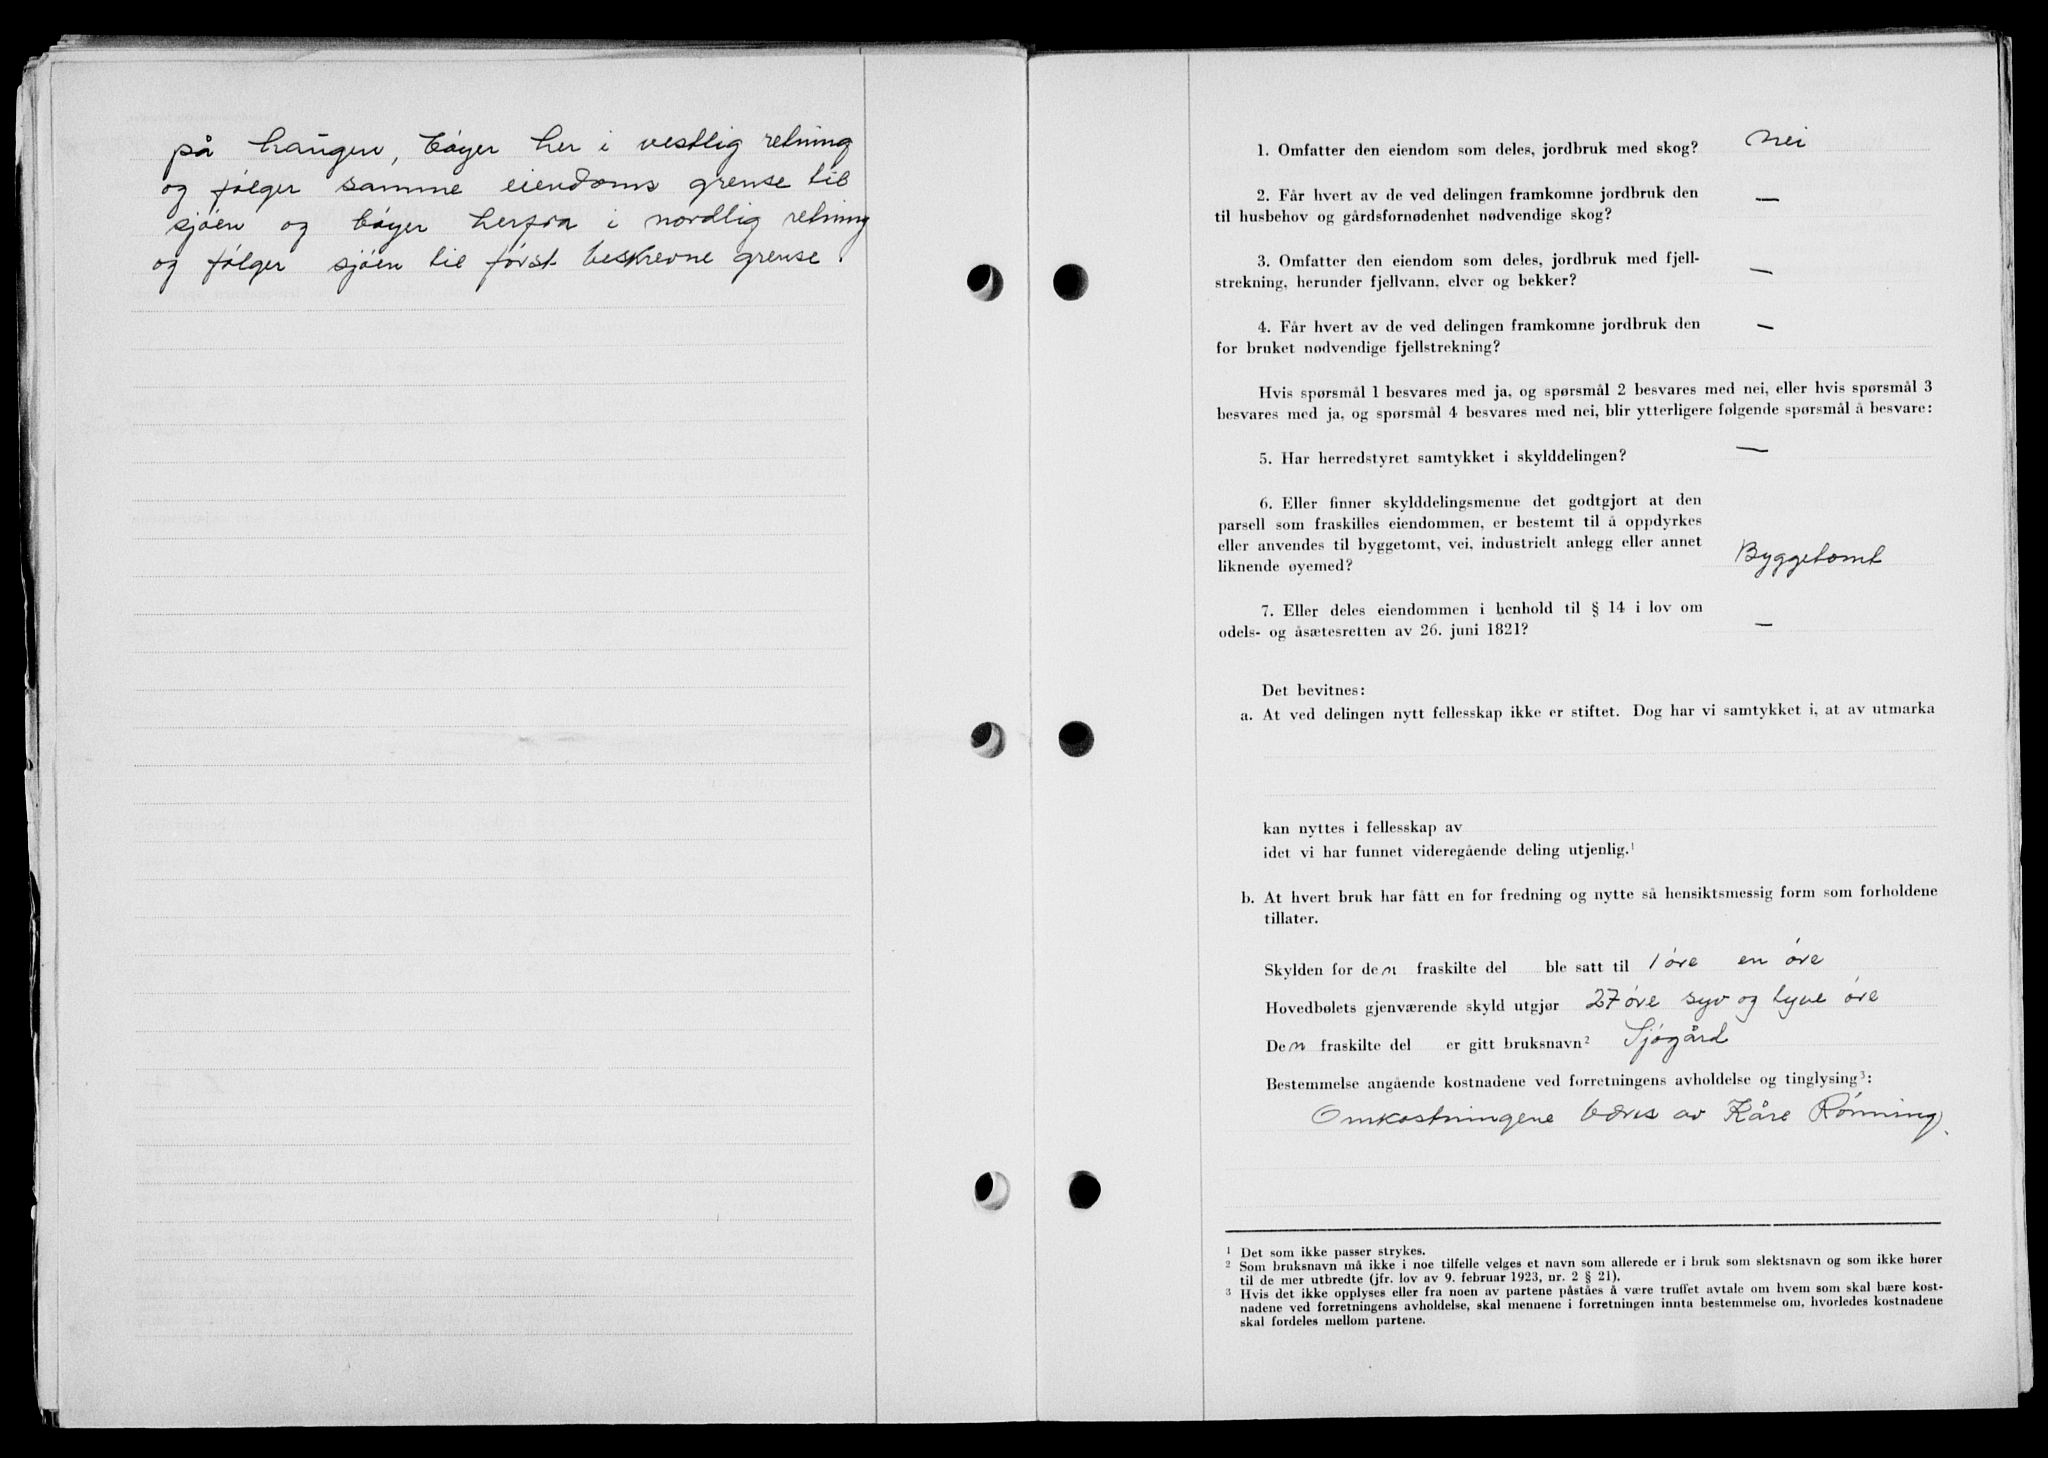 på haugen, bøyer her i vestlig retning
og følger samme eiendoms grense til
sjøen og bøyer herfra i nordlig retning
og følger sjøen til først beskrevne grense
1. Omfatter den eiendom som deles, jordbruk med skog? nei
2. Får hvert av de ved delingen framkomne jordbruk den
til husbehov og gårdsfornødenhet nødvendige skog? —
3. Omfatter den eiendom som deles, jordbruk med fjell-
strekning, herunder fjellvann, elver og bekker? —
4. Får hvert av de ved delingen framkomne jordbruk den —
for bruket nødvendige fjellstrekning?
Hvis spørsmål 1 besvares med ja, og spørsmål 2 besvares med nei, eller hvis spørsmål 3
besvares med ja, og spørsmål 4 besvares med nei, blir ytterligere følgende spørsmål å besvare:
5. Har herredstyret samtykket i skylddelingen? —
6. Eller finner skylddelingsmenne det godtgjort at den
parsell som fraskilles eiendommen, er bestemt til å oppdyrkes
eller anvendes til byggetomt, vei, industrielt anlegg eller annet
liknende øyemed? Byggetomt
7. Eller deles eiendommen i henhold til § 14 i lov om
odels- og åsætesretten av 26. juni 1821? —
Det bevitnes:
a. At ved delingen nytt fellesskap ikke er stiftet. Dog har vi samtykket i, at av utmarka
kan nyttes i fellesskap av
idet vi har funnet videregående deling utjenlig.¹
b. At hvert bruk har fått en for fredning og nytte så hensiktsmessig form som forholdene
tillater.
Skylden for den fraskilte del ble satt til 1 øre en øre
Hovedbølets gjenværende skyld utgjør 27 øre syv og tyve øre
Den fraskilte del er gitt bruksnavn² Sjøgård
Bestemmelse angående kostnadene ved forretningens avholdelse og tinglysing³:
Omkostningene bæres av Kåre Rønning.
¹ Det som ikke passer strykes.
² Som bruksnavn må ikke i noe tilfelle velges et navn som allerede er i bruk som slektsnavn og som ikke hører
til de mer utbredte (jfr. lov av 9. februar 1923, nr. 2 § 21).
³ Hvis det ikke opplyses eller fra noen av partene påståes å være truffet avtale om hvem som skal bære kost-
nadene ved forretningens avholdelse, skal mennene i forretningen innta bestemmelse om, hvorledes kostnadene
skal fordeles mellom partene.